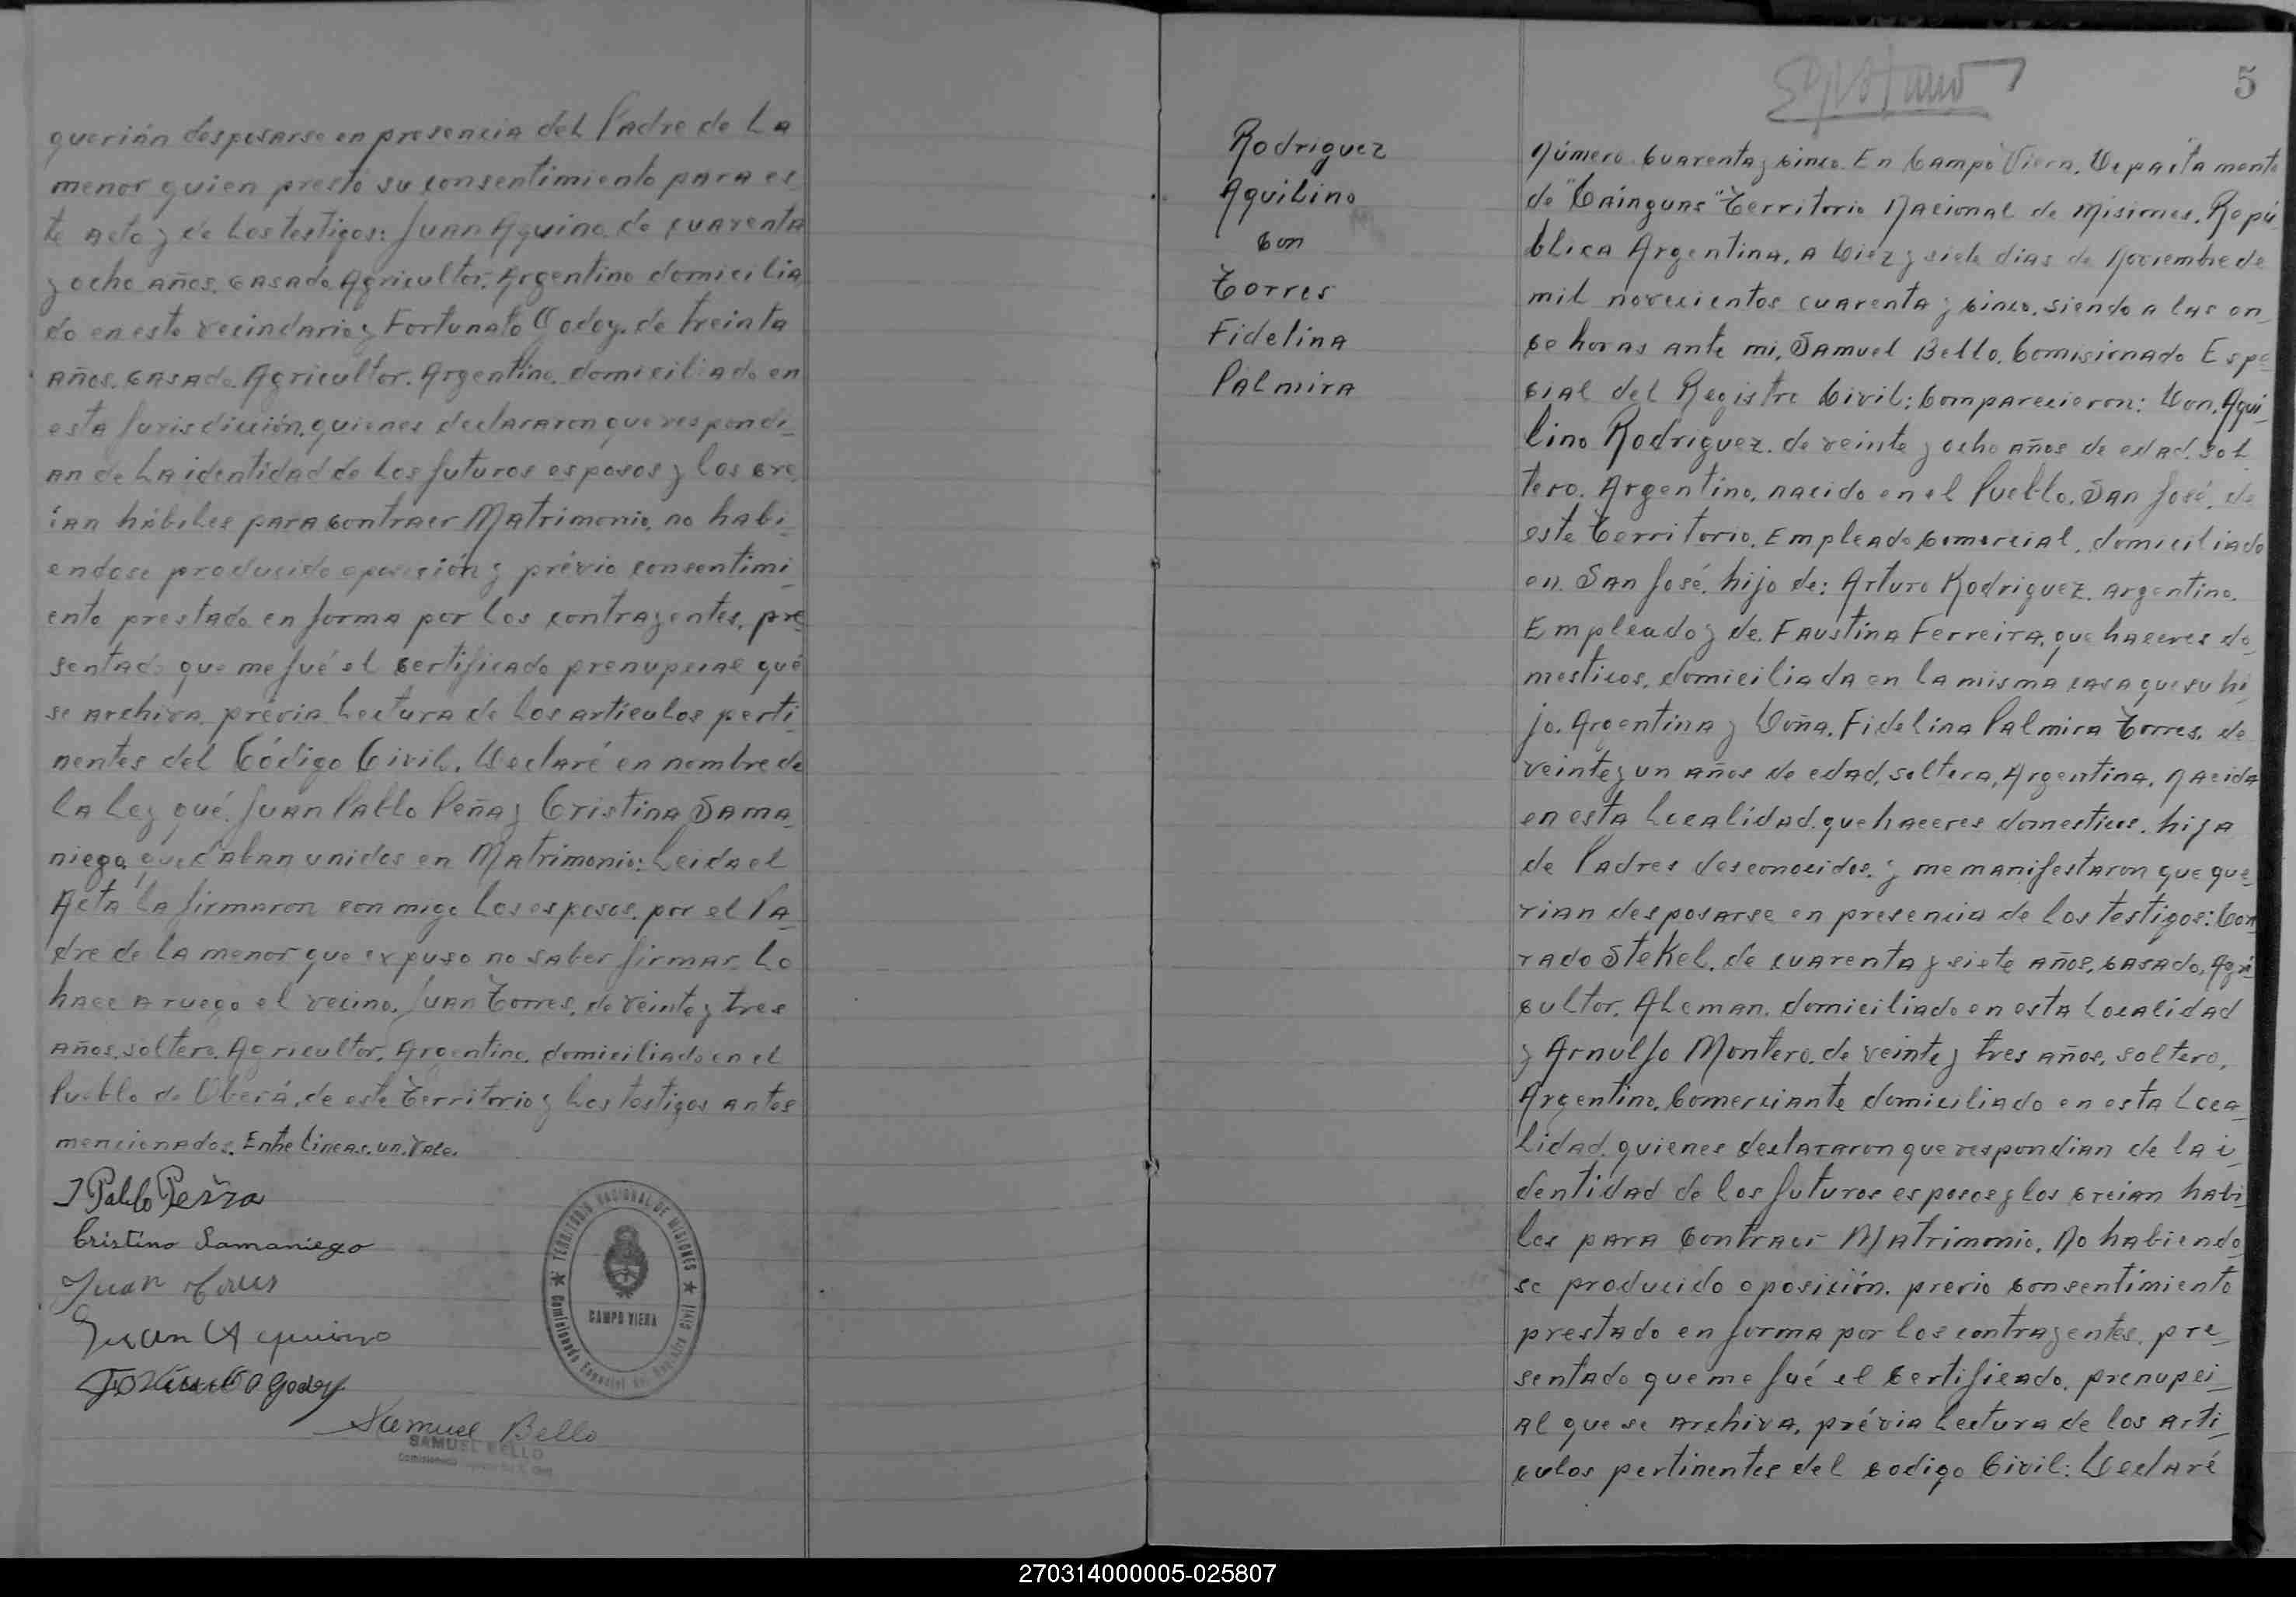 querián desposarse en presencia del Padre de La
menor quien prestó su consentimiento para es
te acto y de Los testigos: Juan Aquino de cuarenta
y ocho años. casado. Agricultor. Argentino domicilia
do en este vecindario y Fortunato Godoy. de treinta
años. casado. Agricultor. Argentino. domiciliado en
esta Jurisdicción. quienes declararon que respondi_
an de La identidad de Los futuros esposos y los cre
ian hábiles para contraer Matrimonio. no habi_
endose producido oposición y prévio consentimi_
ento prestado en forma por los contrayentes. pre_
sentado que me fué el certificado prenupcial qué
se archiva prévia Lectura de Los articulos perti_
nentes del Código Civil. Declaré en nombre de
La Ley qué. Juan Pablo Peña y Cristina Sama_
niego quedaban unidos en Matrimonio: Leida el
Acta la firmaron con migo Los esposos. por el Pa_
dre de la menor que expuso no saber firmar. Lo
hace a ruego el vecino. Juan Torres. de veinte y tres
años. soltero. Agricultor. Argentino. domiciliado en el
Pueblo de Oberá. de este Territorio y Los testigos antes
mencionados. Entre Lineas. un. Vale.
J Pablo Peña
Cristina Samaniego
Juan Torres
Juan Aquino
Fortunato Godoy
Samuel Bello
SAMUEL BELLO
TERRITORIO NACIONAL DE MISIONES
CAMPO VIERA
Comisionado Especial del Registro Civil
5
Rodriguez
Aquilino
con
Torres
Fidelina
Palmira
Número cuarenta y cinco. En Campo Viera. Departamento
de "Cainguas" Territorio Nacional de Misiones. Repú
blica Argentina. a Diez y siete dias de Noviembre de
mil novecientos cuarenta y cinco. siendo a las on_
ce horas ante mi, Samuel Bello. Comisionado Espe
cial del Registro Civil: Comparecieron: Don. Aqui_
lino Rodriguez. de veinte y ocho años de edad. sol
tero. Argentino. nacido en el Pueblo. San José. de
este Territorio. Empleado Comercial. domiciliado
en San José. hijo de: Arturo Rodriguez. argentino.
Empleado y de. Faustina Ferreira. que haceres do_
mesticos. domiciliada en la misma casa que su hi_
jo. Argentina y Doña. Fidelina Palmira Torres. de
veinte y un años de edad, soltera, Argentina. Nacida
en esta Localidad. que haceres domesticos. hija
de Padres desconocidos. y me manifestaron que que_
rian desposarse en presencia de los testigos: Con_
rado Stekel. de cuarenta y siete años. casado, Agri
cultor. Aleman. domiciliado en esta Localidad
y Arnulfo Montero. de veinte y tres años. soltero.
Argentino. Comerciante domiciliado en esta Loca_
lidad. quienes declararon que respondian de la i_
dentidad de los futuros esposos y los creian habi_
les para contraer Matrimonio. No habiendo_
se producido oposición. previo consentimiento
prestado en forma por los contrayentes. pre_
sentado que me fué el certificado. prenupci_
al que se archiva. prévia Lectura de los arti_
culos pertinentes del codigo Civil: Declaré
270314000005-025807